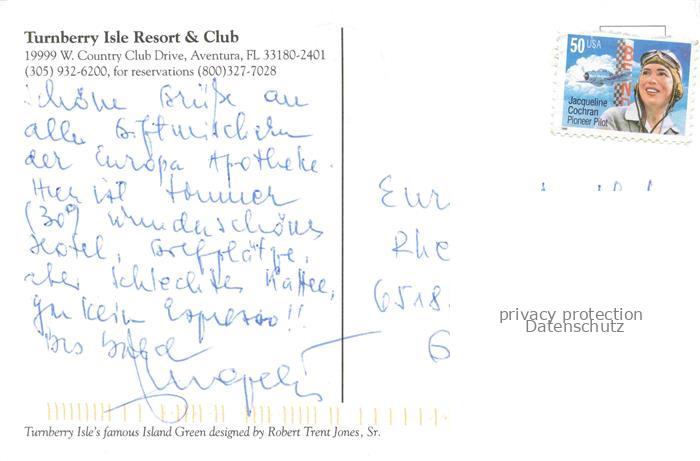 Turnberry Isle Resort & Club
19999 W. Country Club Drive, Aventura, FL 33180-2401
(305) 932-6200, for reservations (800)327-7028
Schöne Grüße an
alle Giftmischer
der Europa Apotheke.
Hier ist Sommer
(30°) wunderschönes
Hotel, Golfplätze,
aber schlechter Kaffee,
gar kein Espresso!!
Bis bald
50 USA
Jacqueline
Cochran
Pioneer Pilot
Eur
Rhe
6518
6
privacy protection
Datenschutz
Turnberry Isle's famous Island Green designed by Robert Trent Jones, Sr.